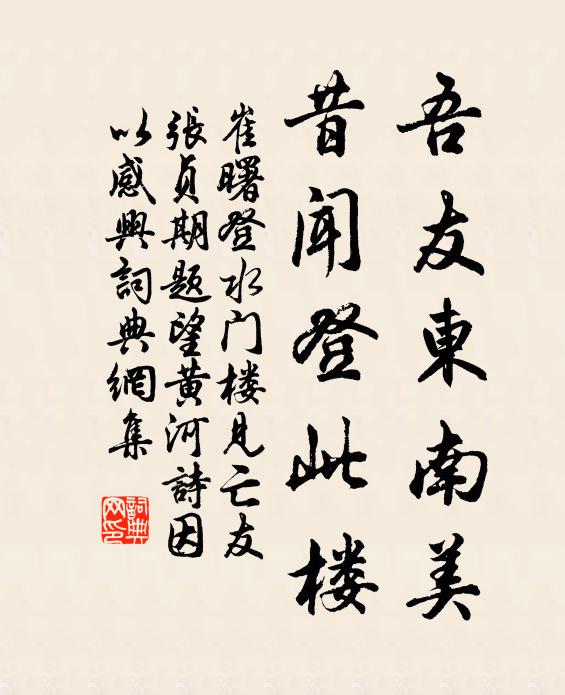 吾友東南美
昔聞登此楼
崔曙登水门楼見亡友
張貞期題望黄河詩因
以感興詞典網集
詞典
网印